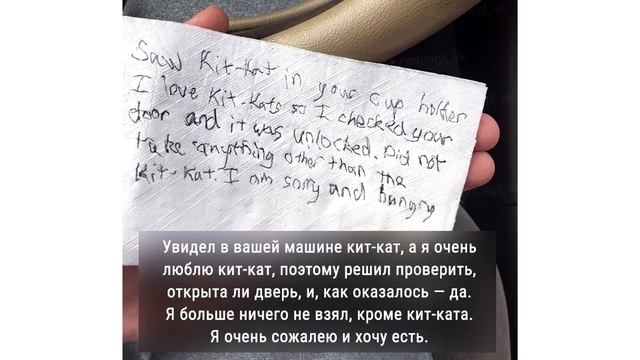 Saw Kit-Kat in your cup holder
I love Kit-Kats so I checked your
door and it was unlocked. Did not
take anything other than the
Kit-Kat. I am sorry and hungry
Увидел в вашей машине кит-кат, а я очень
люблю кит-кат, поэтому решил проверить,
открыта ли дверь, и, как оказалось — да.
Я больше ничего не взял, кроме кит-ката.
Я очень сожалею и хочу есть.